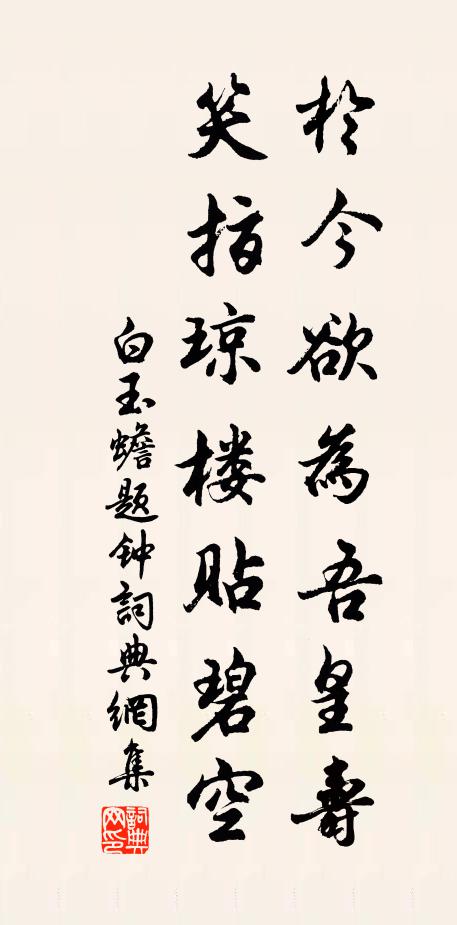 於今欲為吾皇壽
笑指琼楼贴碧空
白玉蟾题钟詞典網集
詞典网印